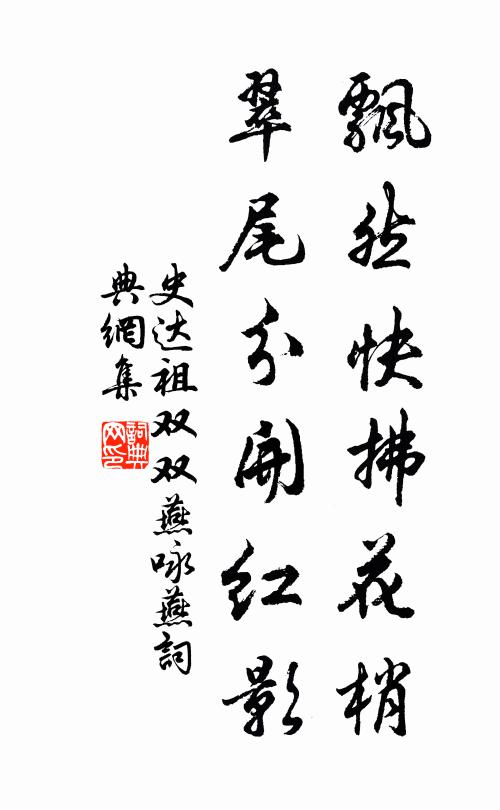 飄然快拂花梢
翠尾分開紅影
史达祖双双燕咏燕詞
典網集
詞典网印